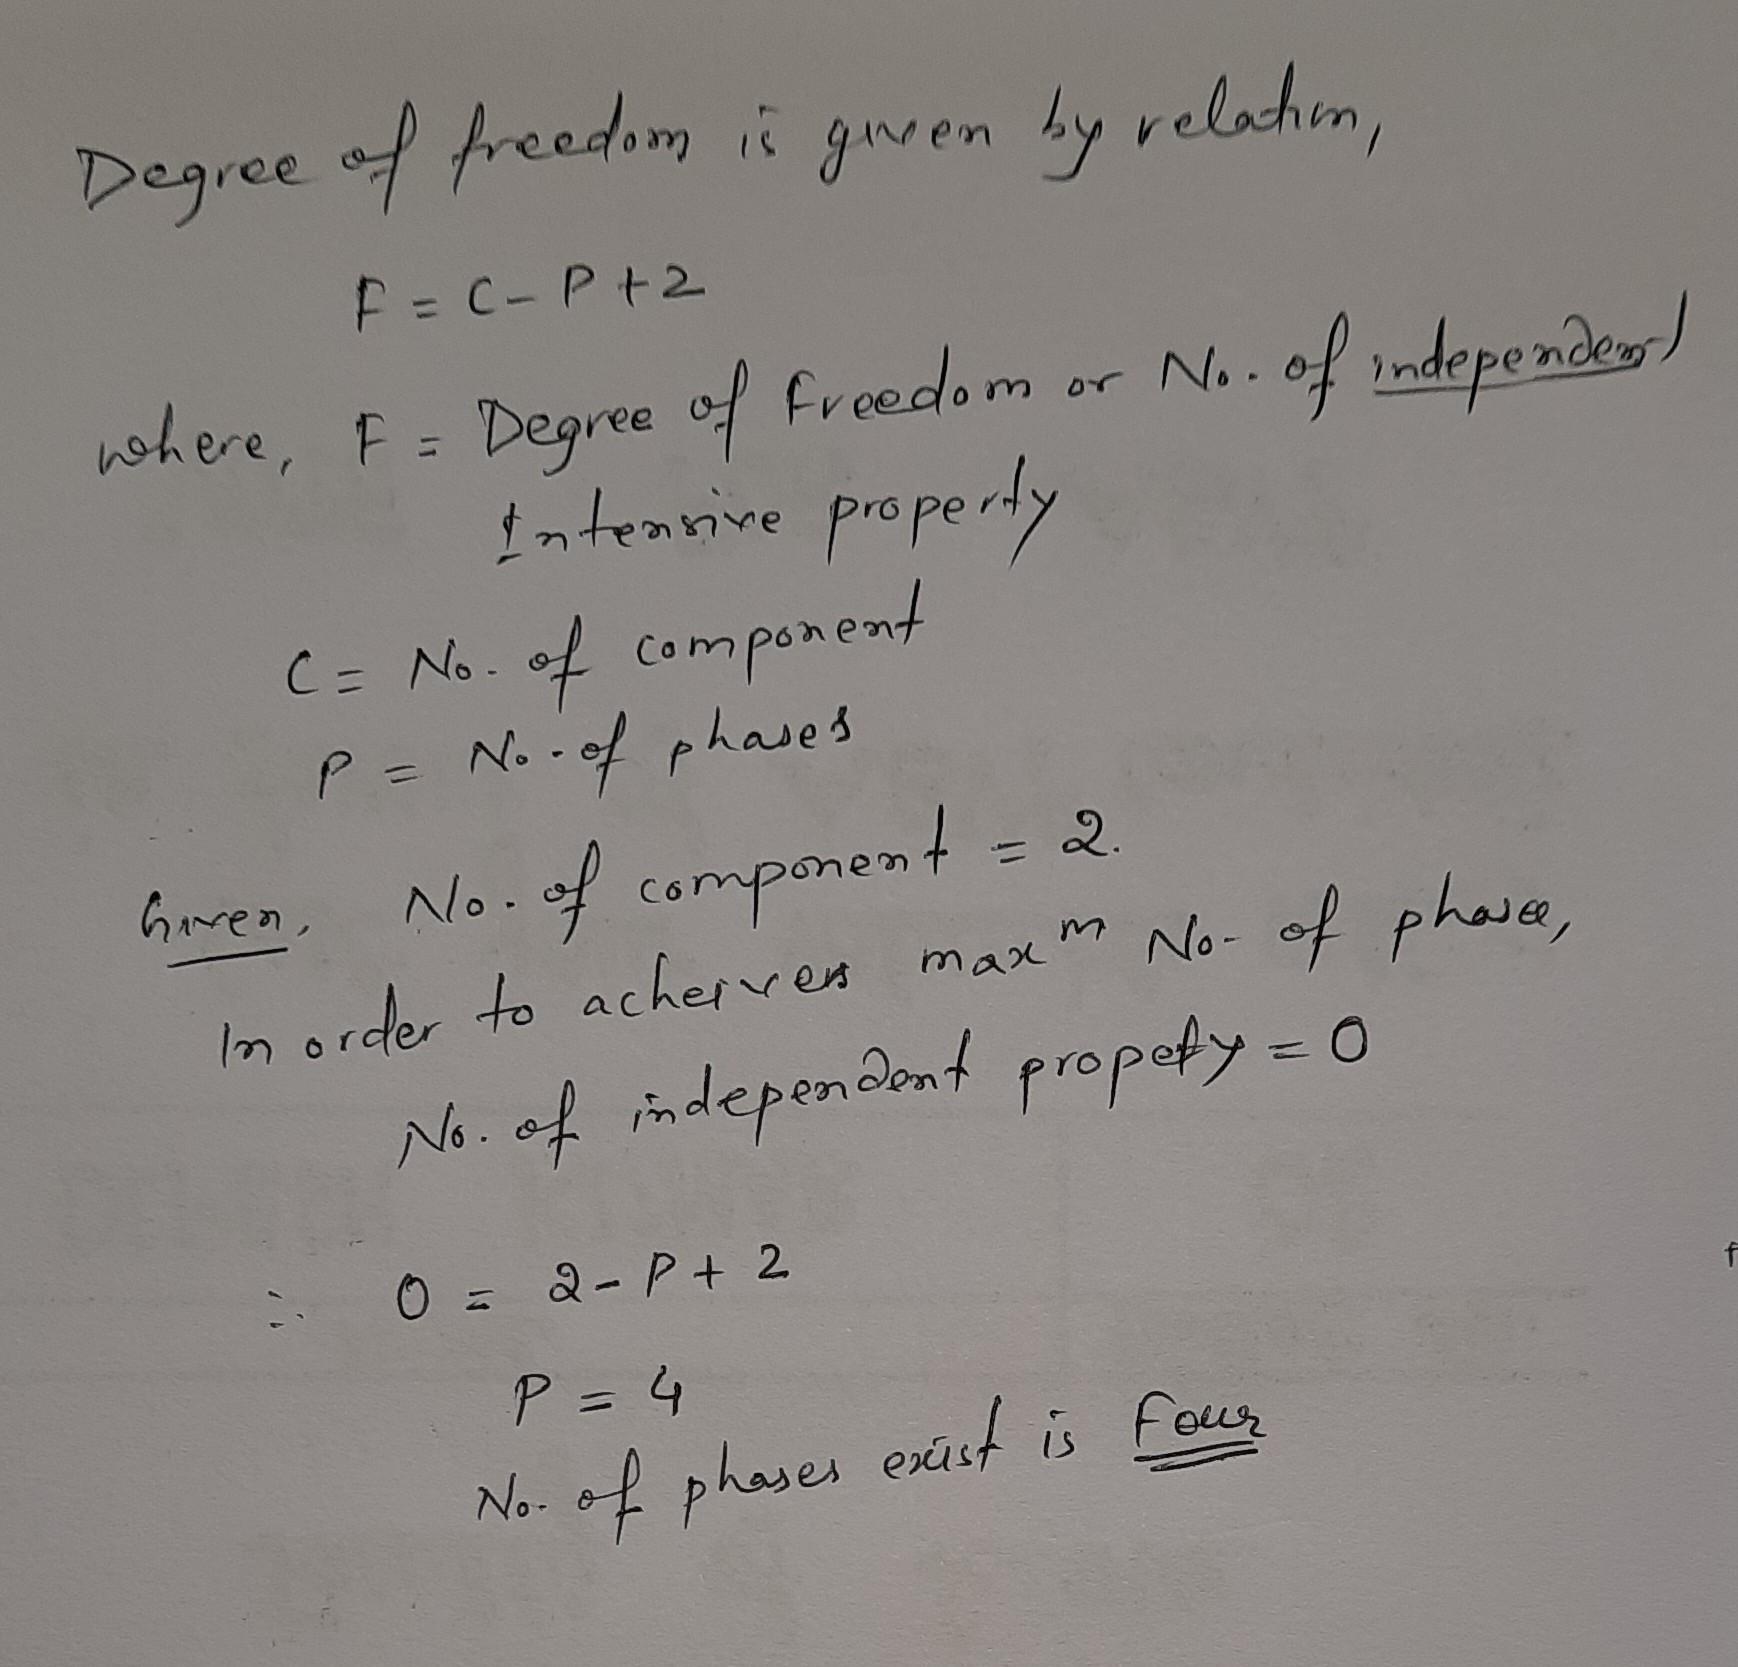 Degree of freedom is given by relation,
F = C - P + 2
where, F = Degree of freedom or No. of independent
Intensive property
C = No. of component
P = No. of phases
Given, No. of component = 2.
In order to acheiven maxᵐ No. of phase,
No. of independent propety = 0
∴ 0 = 2 - P + 2
P = 4
No. of phases exist is Four